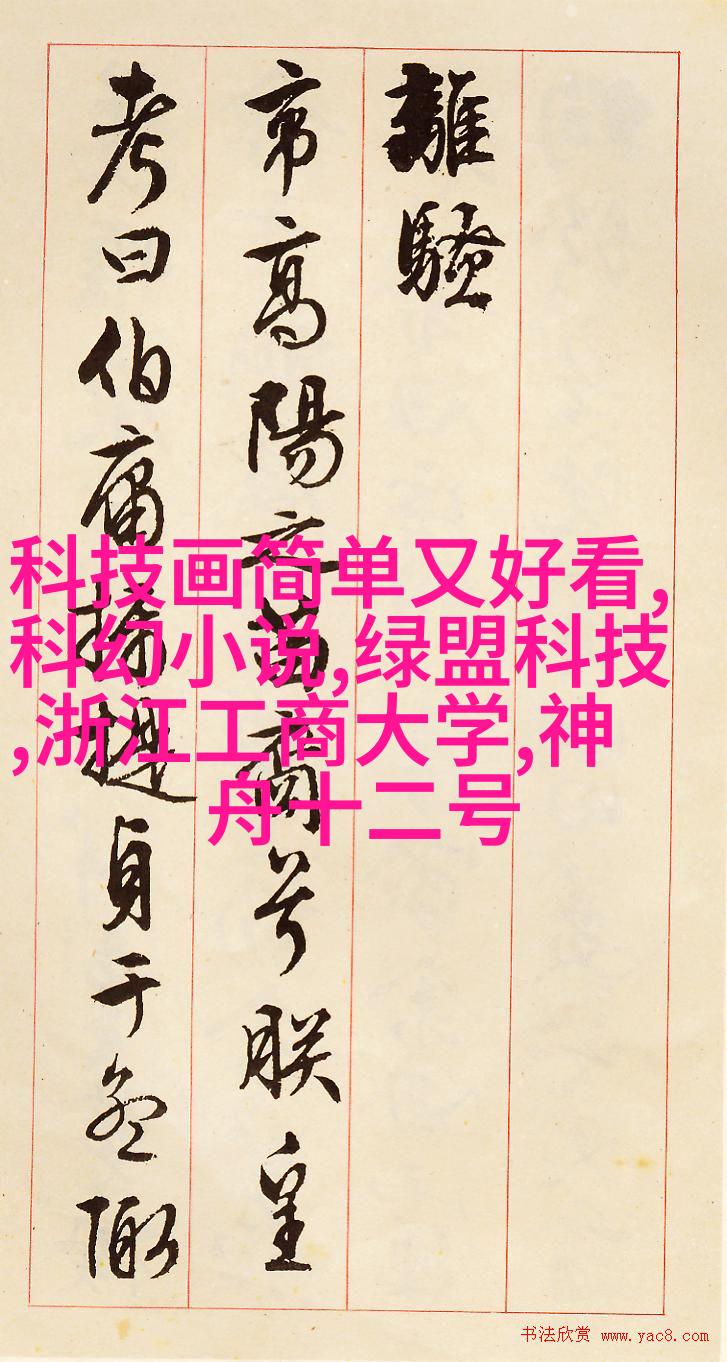 離騷
帝高陽之苗裔兮朕皇
考曰伯庸攝提貞于孟陬
科技画简单又好看,
科幻小说,绿盟科技
,浙江工商大学,神
舟十二号
书法欣赏 www.yac8.com